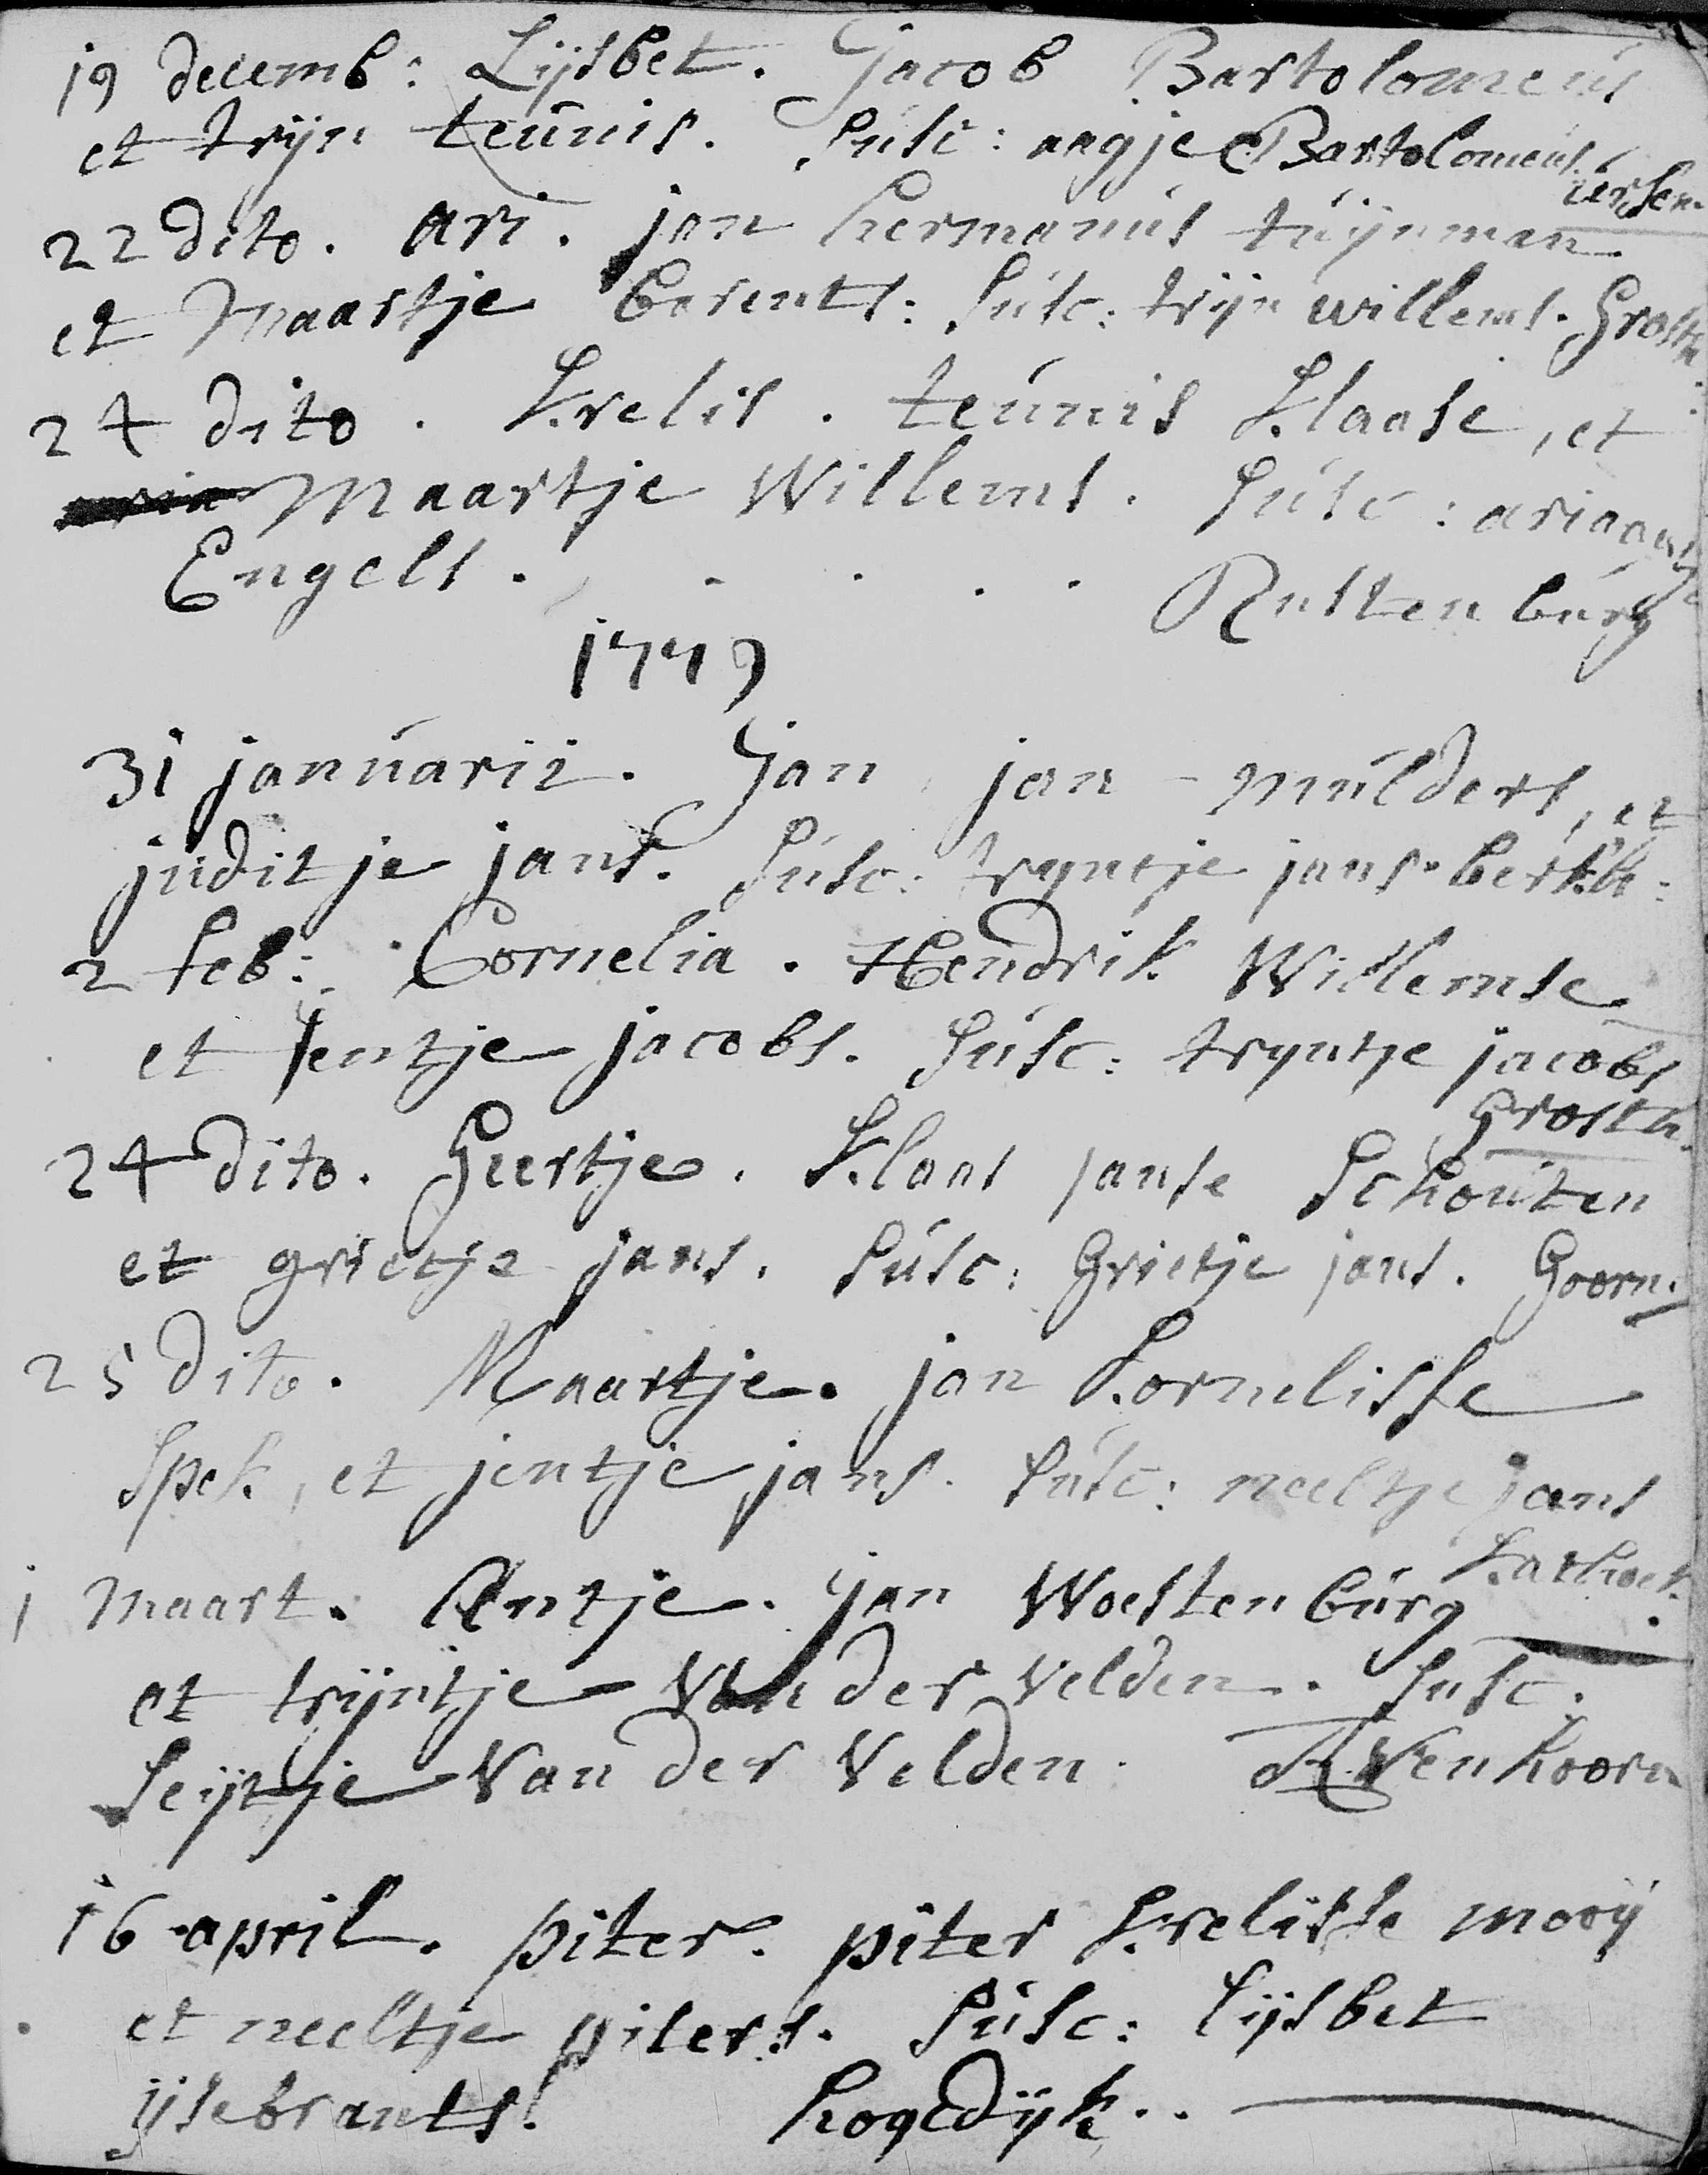 19 decemb: Lijsbet. Jacob Bartolomeús
et trijn teúnis. Súsc: aagje Bartolomeús.
úersen.
22 dito. ari. jan hermanús túijnman
et Maartje barents: Súsc: trijn willems. Grosth.
24 dito. Krelis. teúnis Klaase, et
Maartje Willems. Súsc: ariaantje
Engels. . . . . Rustenbúrg
1779
31 janúarii. Jan jan múlders, et
júditje jans. Súsc: tryntje jans. berkh:
2 feb: Cornelia. Hendrik Willemse
et jentje jacobs. Súsc: tryntje jacobs
Grosth.
24 dito. Geertje. Klaas janse Schoúten
et grietje jans. Súsc: Grietje jans. Goorn.
25 dito. Maartje. jan Kornelisse
Spek, et jentje jans. Súsc: neeltje jans
Kathoek.
1 Maart. Antje. jan Woestenbúrg
et trijntje Van der Velden. Susc.
Seijtje Van der Velden. AVenhoorn
16 april. piter. piter Krelisse mooij
et neeltje piters. Súsc: lijsbet
ijsebrants. hogedijk..